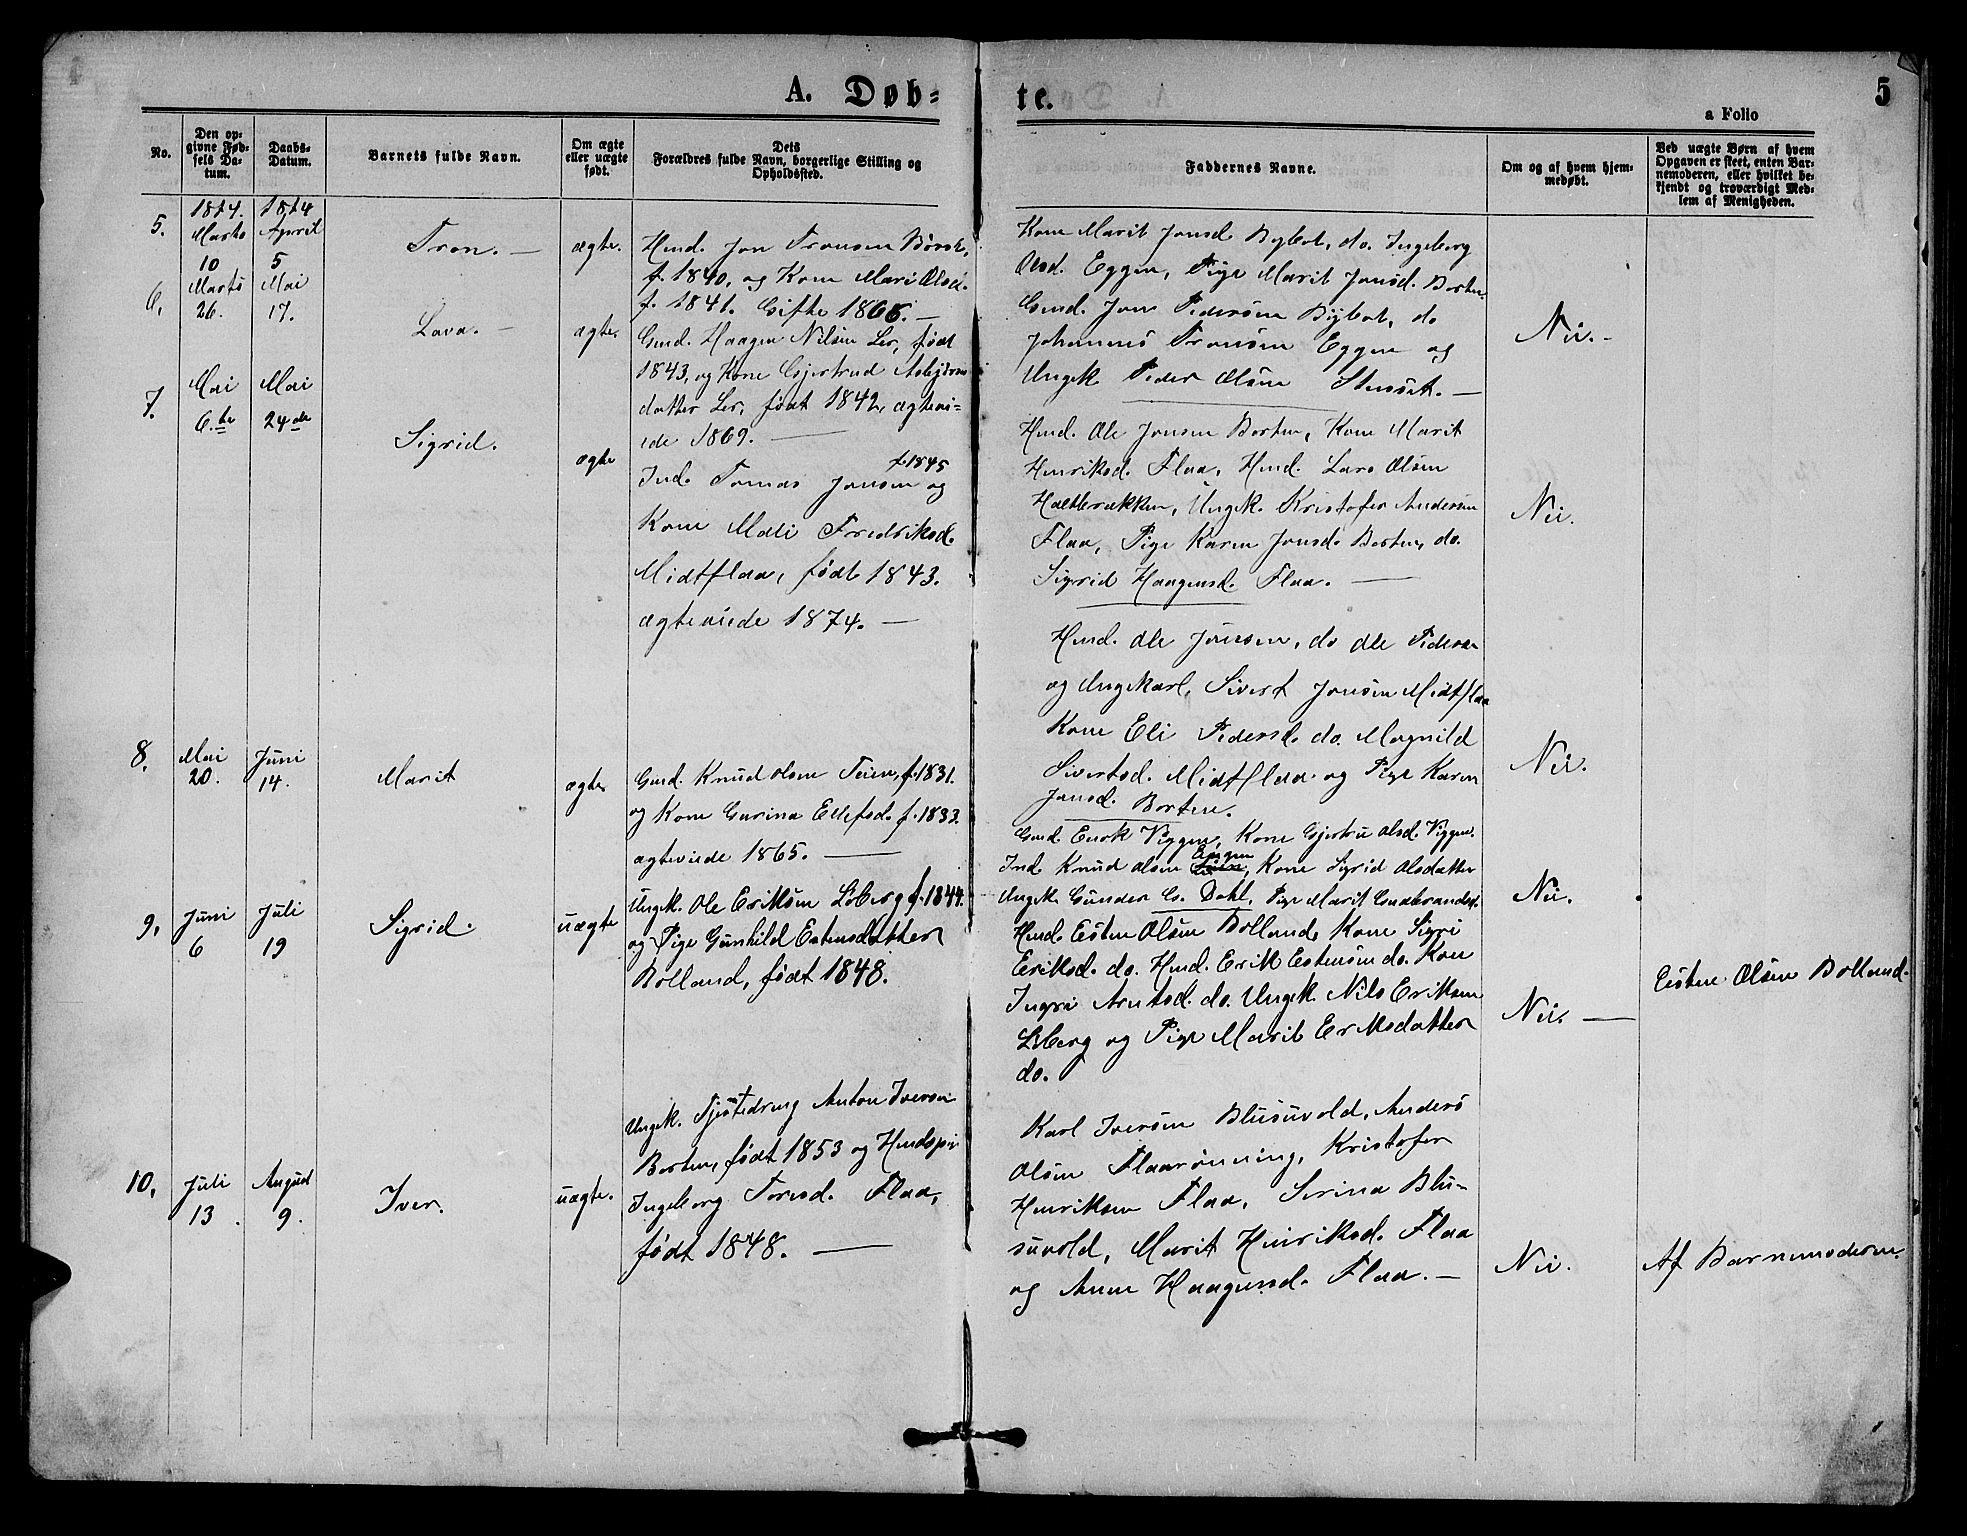 A. Døb=
te.
5
a Folio
No.
Den op=
givne Fød=
sels Da=
tum.
Daabs=
Datum.
Barnets fulde Navn.
Om ægte
eller uægte
født.
Dets
Forældres fulde Navn, borgerlige Stilling og
Opholdssted.
Faddernes Navne.
Om og af hvem hjem=
medøbt.
Ved uægte Børn af hvem
Opgaven er skeet, enten Bar=
nemoderen, eller hvilket be=
kjendt og troværdigt Med=
lem af Menigheden.
5.
1874.
Marts
10
1874
April
5
Tron. —
ægte.
Hmd. Jon Tronsen Borten,
f. 1840, og Kone Mari Olsd.
f. 1841. Gifte 1866. —
Kone Marit Jonsd. Bybot, do. Ingeborg
Olsd. Eggen, Pige Marit Jonsd. Borten
Gmd. Jon Pedersen Bybot, do
Johannes Tronsen Eggen og
Ungk. Peder Olsen —
Nei. -
6.
Marts
26.
Mai
17.
Lava. —
ægte.
Gmd. Haagen Nilsen Ler, født
1843, og Kone Gjertrud Asbjørns
datter Ler, født 1842, ægtevi=
ede 1869. —
Hmd. Ole Jonsen Borten, Kone Marit
Henriksd. Flaa, Hmd. Lars Olsen
Haltbrækken, Ungk. Kristofer Andersen
Flaa, Pige Karen Jonsd. Borten, do.
Sigrid Haagensd. Flaa. —
Nei.
7.
Mai
6.te
Mai
24de
Sigrid.
ægte
f. 1845
Ind. Tomas Jonsen og
Kone Mali Fredriksd.
Midtflaa, født 1843.
ægteviede 1874. —
Hmd. Ole Jonsen, do Ole Pedersen
og Ungkarl, Sivert Jonsen Midtflaa
Kone Eli Pedersd. do. Magnild
Sivertsd. Midtflaa og Pige Karen
Jonsd. Borten.
Nei.
8.
Mai
20.
Juni
14.
Marit
ægte
Gmd. Knud Olsen Teien, f. 1831.
og Kone Gurina Ellefsd. f. 1833.
ægteviede 1865. —
Gmd Enok Viggen, Kone Gjertru Olsd. Viggen.
Ind. Knud Olsen Engen, Kone Sigrid Olsdatter
Ungk. Gunder G. Dahl, Pige Marit Gudbrandsd.
Nei.
9.
Juni
6
Juli
19
Sigrid.
uægte
Ungk. Ole Eriksen Løberg f. 1844.
og Pige Gunhild Estensdatter
Bolland, født 1848.
Hmd. Esten Olsen Bolland, Kone Sigri
Eriksd. do. Hmd. Erik Estensen do. Kone
Ingri Arntsd. do. Ungk. Nils Eriksen
Løberg og Pige Marit Eriksdatter
do.
Nei. —
Esten Olsen Bolland.
10.
Juli
13.
August
9.
Iver.
uægte.
Ungk. Tjestedreng Anton Iversen
Borten, født 1853 og
Ingeborg Toresd. Flaa,
født 1848. —
Karl Iversen Blusuvold, Anders
Olsen Flaarønning, Kristofer
Henriksen Flaa, Serina Blu-
suvold, Marit Henriksd. Flaa
og Anne Haagensd. Flaa. —
Nei.
Af Barnemoderen.